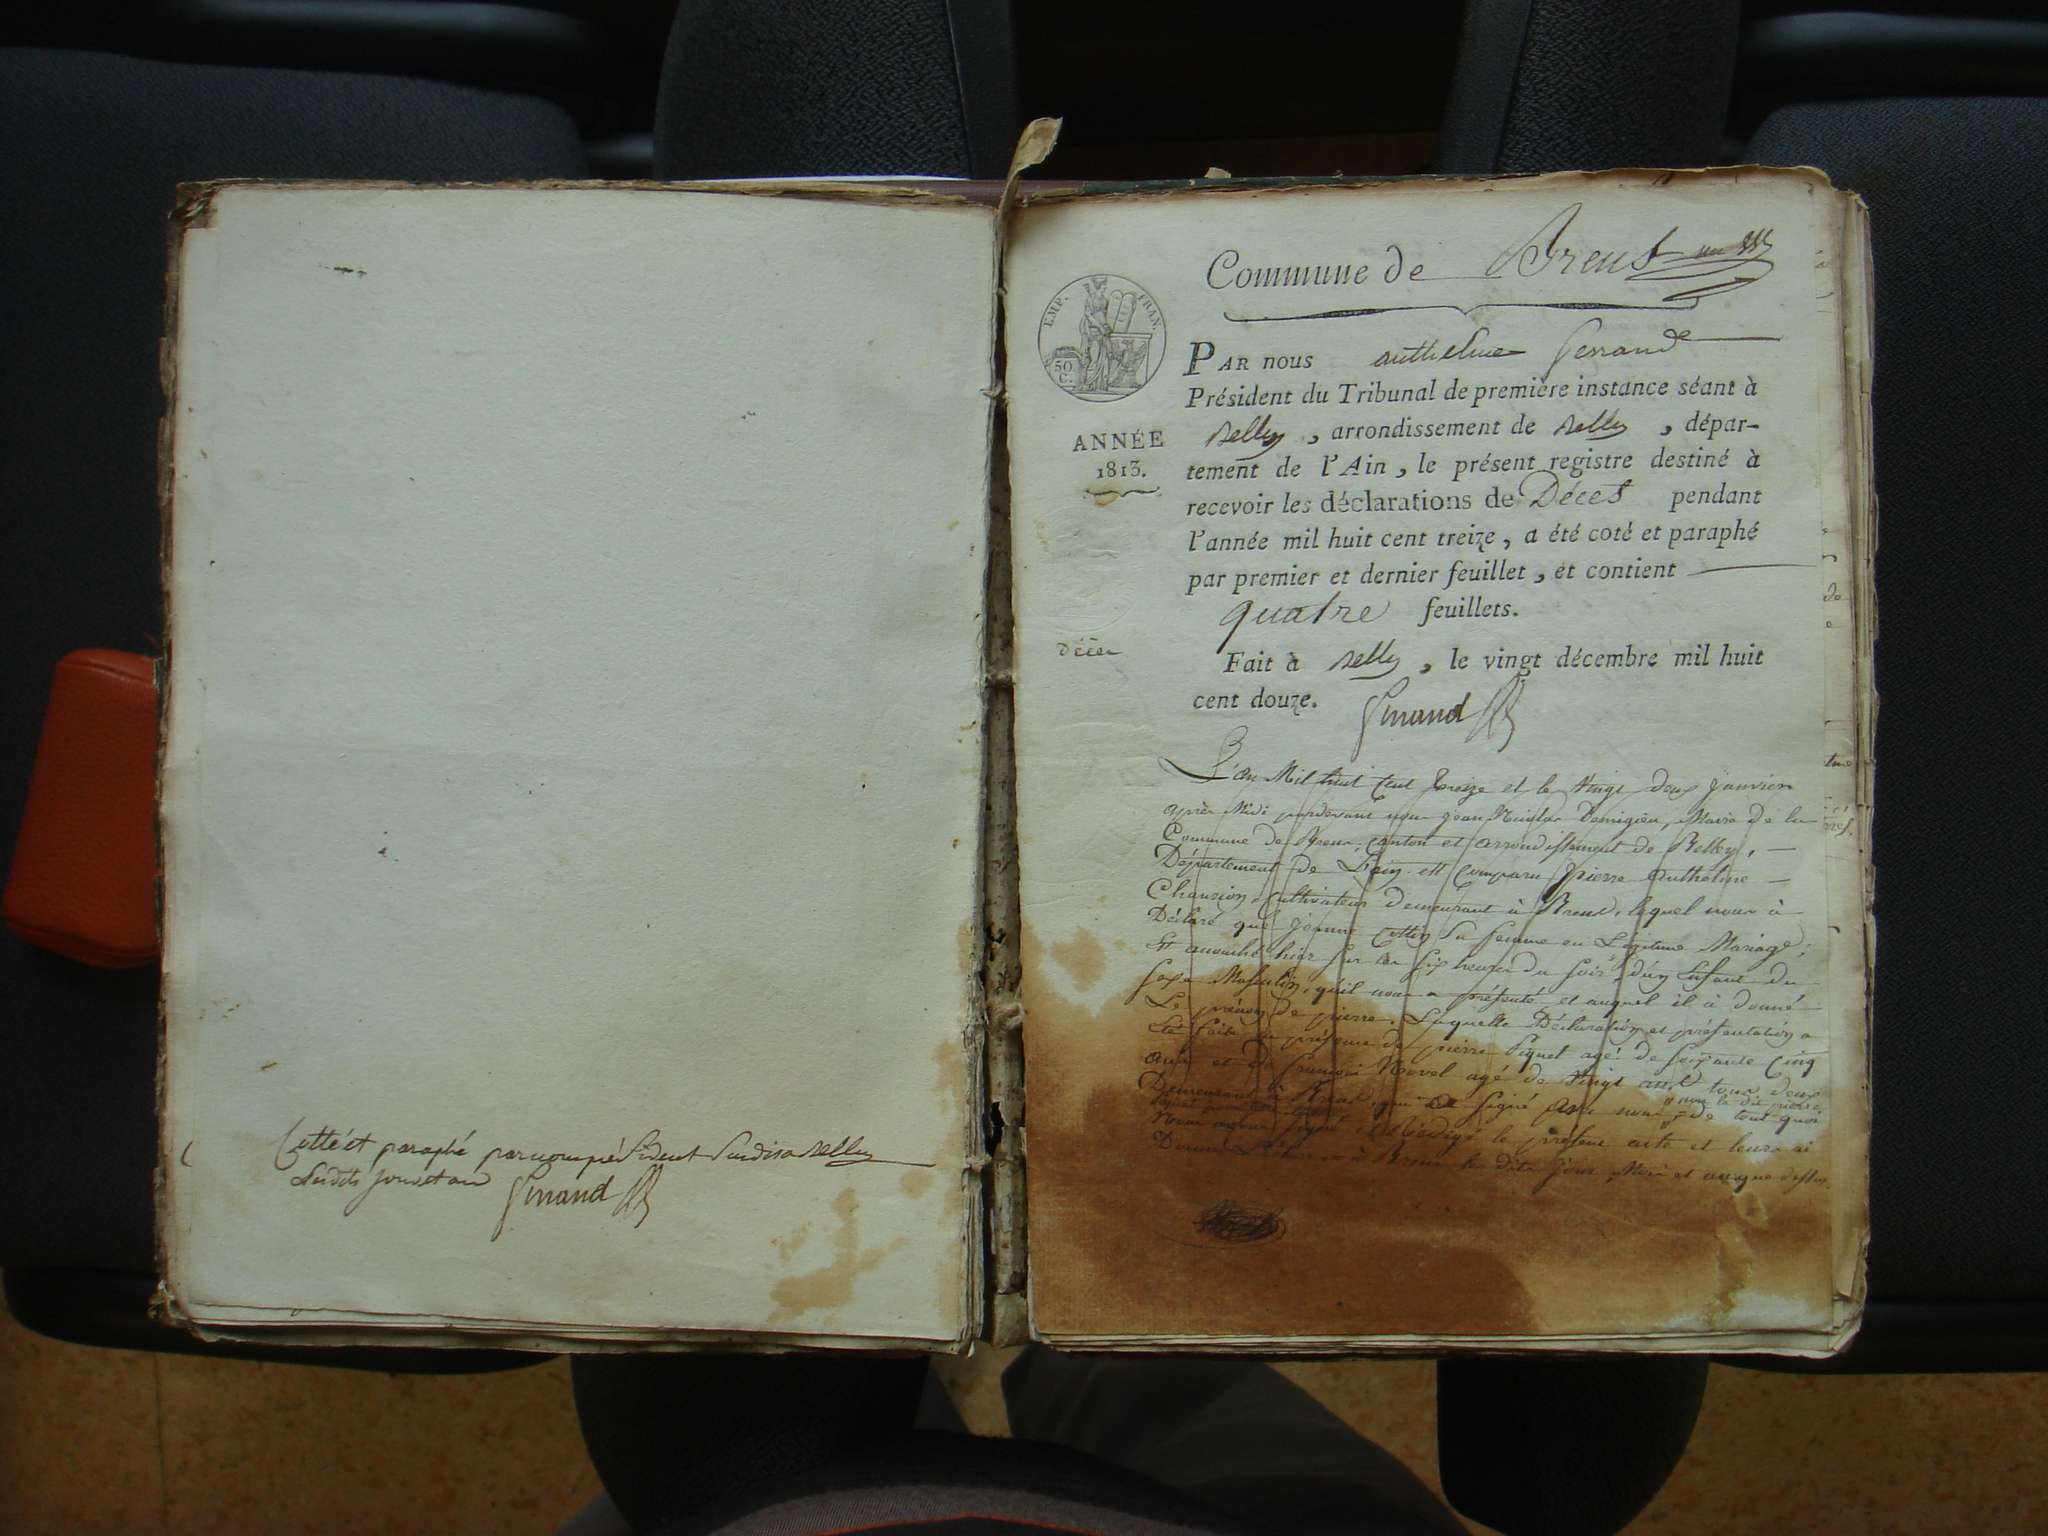 Cotté et paraphé par nous président susdit a Belley
lesdits jour et an Genand
Commune de Brens un
EMP. FRAN.
50 C.
ANNÉE
1813.
PAR nous anthelme Genand
Président du Tribunal de première instance séant à
Belley, arrondissement de Belley, dépar-
tement de l'Ain, le présent registre destiné à
recevoir les déclarations de Décès pendant
l'année mil huit cent treize, a été coté et paraphé
par premier et dernier feuillet, et contient
quatre feuillets.
Décès
Fait à Belley, le vingt décembre mil huit
cent douze. Genand
L'an Mil huit Cent treize et le vingt deux janvier
après Midi pardevant nous jean Nicolas Demigieu, Maire de la
Commune de Brens, Canton et arrondissement de Belley,
Département de L'ain est Comparu pierre anthelme
Chanzion, Cultivateur demeurant à Brens, lequel nous à
Déclaré que jeanne Cottin Sa femme en Légitime Mariage,
Est accouché hier sur les six heures du soir, d'un Enfant du
sexe Masculin, qu'il nous a présenté et auquel il à donné
Le prénom de pierre. Laquelle Déclaration et présentation a
été faite en présence de pierre Piquet agé de soixante Cinq
ans et de francois Novel agé de Vingt ans, tous deux
Demeurant à Brens, qui ont signé avec nous de tout quoi
non le dit pierre
Nous avons signé et rédigé le présent acte et leurs ai
Donné Lecture à Brens les dits jour, Mois et an que dessus.